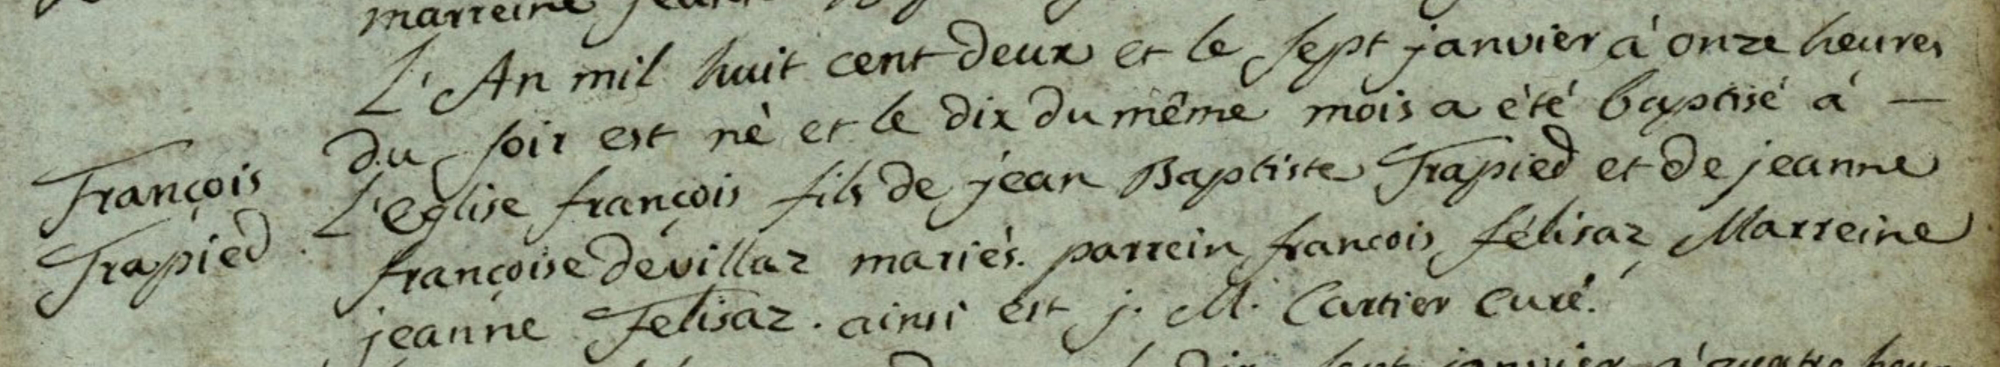 marreine
L'An mil huit cent deux et le sept janvier à onze heures
du soir est né et le dix du même mois a été baptisé à —
François
L'eglise françois fils de jean Baptiste Trapied et de jeanne
Trapied
françoise dévillaz mariés. parrein françois félisaz Marreine
jeanne Felisaz. ainsi est j. M. Cartier Curé.
sept janvier à quatre